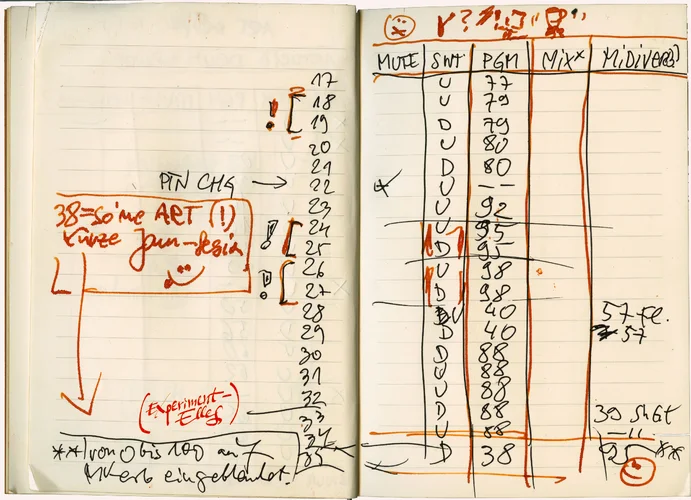 17
! [ 18
19
20
21
PTN CHG → 22
23
38=so'ne ART (!)
kurze Jam-
! [ 24
25
! [ 26
27
28
29
30
31
32
(Experiment-
Elles)
33
34
35
**) von 0 bis 100 auf 7
eingeblendet.
MUTE | SWT | PGM | MIX* | MiDiVERB
U 77
U 79
D 79
U 80
D 80
* U --
U 92
U 95
D 95
U 98
D 98
U 40 57
D 40 57
D 88
U 88
U 88
D 88 39
U 88 -"-
D 38 95 **